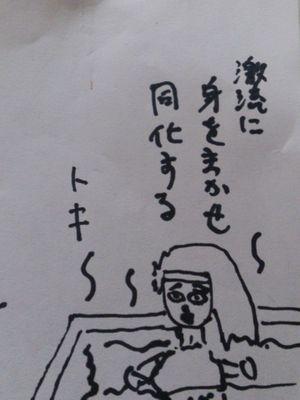 激流に
身をまかせ
同化する
トキ